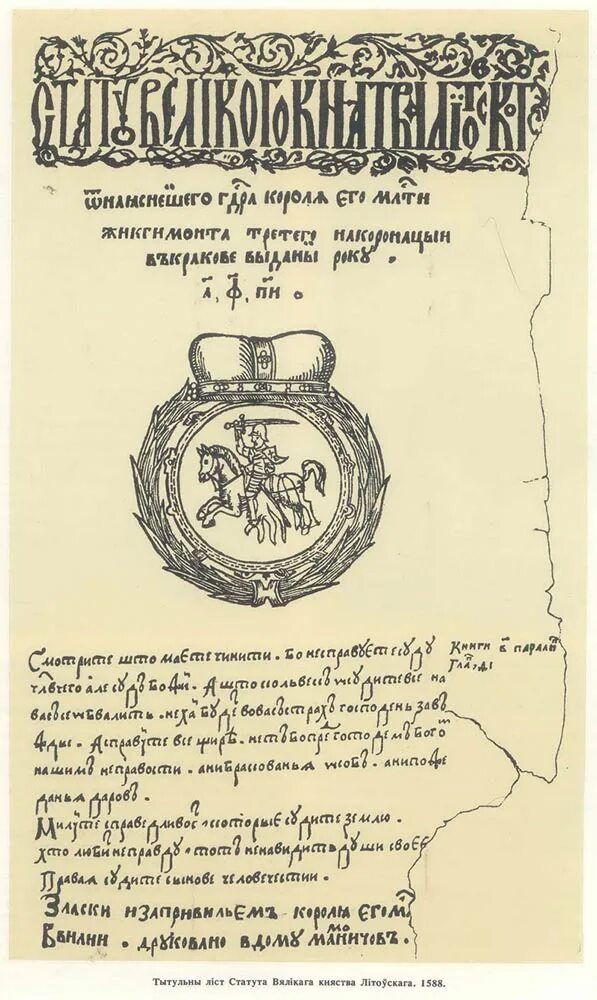 СТАТУ ВЕЛІКОГО КНѧТВА ЛІТОВСКОГ
ѿ наѧснеишего гдрѧ королѧ его млти
жикгимонта третего на коронацыи
въ кракове выданы року.
а, ф, пи.
Смотрите што маете чинити. Бо не справуете суду
члвчего але судъ божй. А што сольвесь судите все на
васъ се ѡбвалить. нехай буде в вас страхъ господень завъ
жды. А справуйте все щире. нетъ бо пре господемъ богом
нашимъ неправости. ани бракованья ѡсобъ. ани пожѣ
данья даровъ.
Книги в паралі
Гла, ді
Милуйте справедливость которые судите землю.
хто любит неправду тотъ ненавидить души своее
Правая судите сынове человечестии.
Зласки и за привильемъ короля его м
В вилни. друковано в дому мамоничовъ.
Тытульны ліст Статута Вялікага княства Літоўскага. 1588.